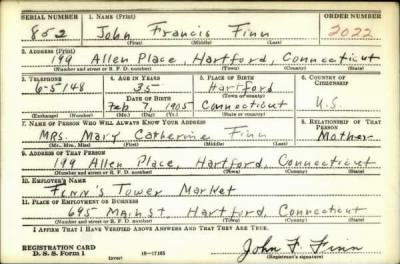 SERIAL NUMBER 1. NAME (Print) ORDER NUMBER
852 John Francis Finn 2022
(First) (Middle) (Last)
2. ADDRESS (Print)
199 Allen Place, Hartford, Connecticut
(Number and street or R. F. D. number) (Town) (County) (State)
3. TELEPHONE 4. AGE IN YEARS 5. PLACE OF BIRTH 6. COUNTRY OF CITIZENSHIP
6-5148 35 Hartford
(Town or county)
DATE OF BIRTH
Feb 7, 1905 Connecticut U.S.
(Exchange) (Number) (Mo.) (Day) (Yr.) (State or country)
7. NAME OF PERSON WHO WILL ALWAYS KNOW YOUR ADDRESS 8. RELATIONSHIP OF THAT PERSON
MRS. Mary Catherine Finn Mother
(Mr., Mrs., Miss) (First) (Middle) (Last)
9. ADDRESS OF THAT PERSON
199 Allen Place, Hartford, Connecticut
(Number and street or R. F. D. number) (Town) (County) (State)
10. EMPLOYER'S NAME
Finn's Tower Market
11. PLACE OF EMPLOYMENT OR BUSINESS
695 Main St Hartford, Connecticut
(Number and street or R. F. D. number) (Town) (County) (State)
I AFFIRM THAT I HAVE VERIFIED ABOVE ANSWERS AND THAT THEY ARE TRUE.
REGISTRATION CARD
D. S. S. Form 1 (over) 16—17105 John F. Finn
(Registrant's signature)